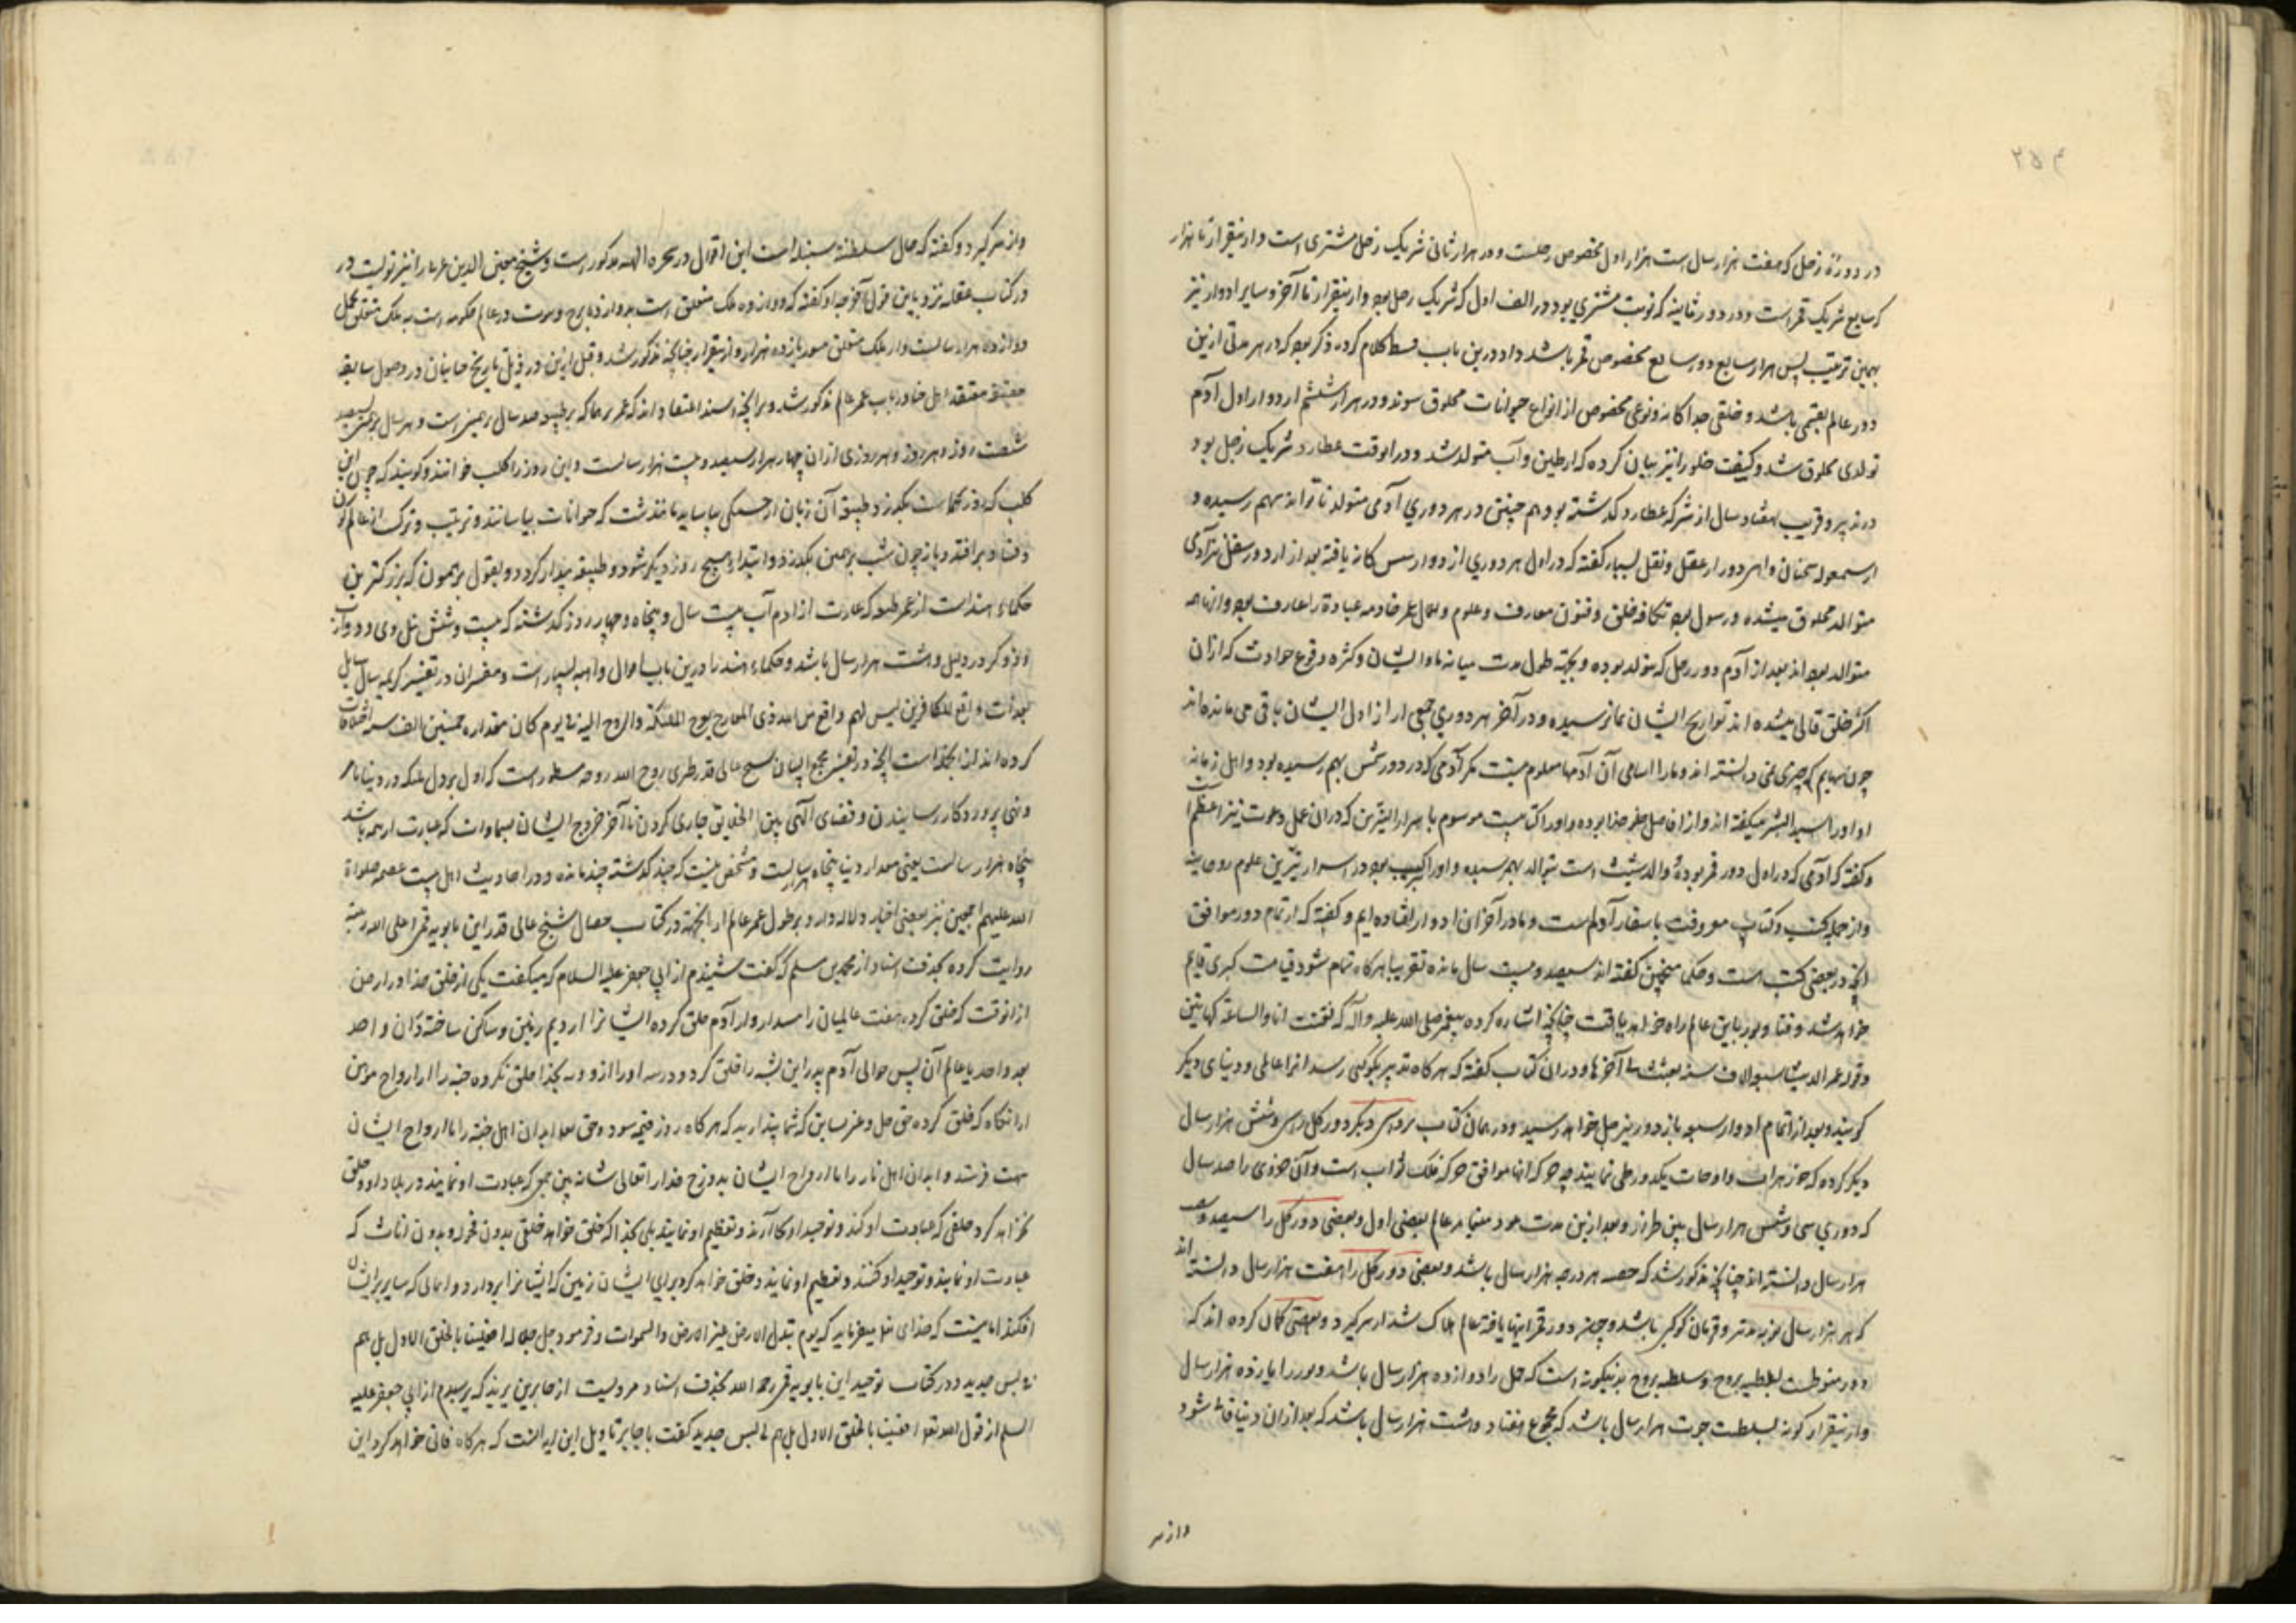 ۲۵۴
در دورهٔ زحل که هفت هزار سال است هزار اول مخصوص زحلست و در هزار ثانی شریک زحل مشتری است و از ینقرار تا هزار
که سابع شریک قمر است و در دور ثانیه که نوبت مشتری بود در الف اول که شریک زحل بود و از ینقرار تا آخر و سایر ادوار نیز
بهمین ترتیب پس هزار سابع دور سابع مخصوص قمر باشد و در این باب بسط کلام کرده ذکر بود که در هر مدتی ازین
دور عالم بقسمی باشد و خلقی جداکانه و نوعی مخصوص از انواع حیوانات مخلوق شوند و در هزار ششم از دوار اول آدم
تولدی مخلوق شد و کیفیت خلق را نیز بیان کرده که از طین و آب متولد شد و در انوقت عطارد شریک زحل بود
و قریب هفتاد سال از شرکه عطارد کذشته بود هم چنین در هر دوری آدمی متولد تا توانند بهم رسیده و
عقل و نقل بسیار کفته که در اول هر دوری از دوار
متوالد مخلوق میشده و رسول بود بکافه خلق و فنون معارف و علوم و
متوالد بود اند بعد از آدم دور زحل که متولد بوده و بجهة طول مدت میانه ما و ایشان و کثره وقوع حوادث که از ان
اکثر خلق فانی میشده اند تواریخ ایشان بما نرسیده و در آخر هر دوری جمعی از اول ایشان باقی می مانده اند
چون بهایم که چیزی نمی دانسته اند و ما را اسامی آن آدمها معلوم نیست مکر آدمی که در دور شمس بهم رسیده بود و اهل زمانه
او او را سید البشر میکفته اند و از
و کفته که آدمی که در اول دور قمر بوده والد شیث است بتوالد بهم رسیده و او را کتب بود در اسرار نیّرین علوم روحانیه
و از جمله کتب و کتاب معروفت باسفار آدمست و ما در آخر ان ادوار افتاده ایم و کفته که از تمام دور موافق
انچه در بعضی کتب است و حکما منجمین کفته اند سیصد و بیست سال مانده تقریبا هر کاه تمام شود قیامت کبری قایم
خواهد شد و فنا و بوار باین عالم راه خواهد یافت چنانچه اشاره کرده پیغمبر صلی الله علیه و آله که بعثت انا و الساعة کهاتین
و قوله عمر الدنیا سبعة الاف سنه بعثت فی آخرها و در ان کتاب کفته که هر کاه تدبیر بکوکبی رسد انرا عالمی و دنیای دیکر
کویند و بعد از اتمام ادوار سبعه باز دور بزحل خواهد رسید و در همان کتاب بروجهی دیکر دور کل را سی و شش هزار سال
ذکر کرده که جوزهرات و اوجات یکدور طی نمایند چه حرکه انها موافق حرکه فلک ثوابت است و آن جزوی را صد سال
که دوری سی و شش هزار سال بهین طرز و بعد از ین مدت عود مینماید عالم بمعنی اول و بعضی دور کل را سیصد و شصت
هزار سال دانسته اند چنانچه مذکور شد که حصه هر درجه هزار سال باشد و بعضی دور کل را هفت هزار سال دانسته اند
که هر هزار سال نوبه تدبیر و قهرمان کوکبی باشد و چون دور قمر انتها یافت عالم هلاک شد از سر کیرد و بعضی کمان کرده اند که
دور منوطست بسلطنه بروج و سلطنه بروج بدینکونه است که حمل را دوازده هزار سال باشد و ثور را یازده هزار سال
و از ینقرار کونه بسلطنت حوت هزار سال باشد که مجموع هفتاد و هشت هزار سال باشد که بعد از ان دنیا فانی شود
و از سر
و از سر کیرد و کفته که حال سلطنه سنبله است این اقوال در مذکور است و شیخ محیی الدین عربی را نیز قولیست در
در کتاب عقله نزدیک باین قول آخر چه او کفته که دوازده ملک متعلق است بدوازده برج و مدت در عالم حکومت ملک متعلق بحمل
دوازده هزار سالست و از ملک متعلق بثور یازده هزار و از ینقرار چنانچه مذکور شد و قبل ازین در ذیل تاریخ ختاییان در فصول سابقه
معتقد اهل ختا در باب عمر عالم مذکور شد و بر انچه اهل هند اعتقاد دارند که عمر برهما که بر طبیعه صد سال برهمنی است و هر سال برهمن سیصد و
شصت روز و هر روز و هر روزی از ان چهار هزار سیصد و بیست هزار سالست و این روز را کلب خوانند و کویند که چون این
کلب که روز برهما است بکذرد طبیعه آن زمان از خستکی بیاساید مانند شب که حیوانات بیاسایند و ترتیب و ترکیب از عالم کون
و فساد بر افتد و باز چون شب برهمن بکذرد و ابتداء صبح روز دیکر شود و طبیعه بیدار کردد و بقول برهمون که بزرکترین
حکماء هند است از عمر طبیعه که عبارت از آدم آب بیست سال و پنجاه و چهار روز کذشته که بیست و شش
و هشت هزار سال باشد و حکماء هند را درین باب اقوال واهیه بسیار است و مفسران در تفسیر کریمه سال سایل
بعذاب واقع للکافرین لیس له دافع من الله ذی المعارج تعرج الملئکة و الروح الیه فی یوم کان مقداره خمسین الف سنه اختلافات
کرده اند از انجمله است انچه در تفسیر مجمع البیان شیخ عالی قدر طبرسی روح الله روحه مسطور است که اول نزول ملئکه در دنیا بامر
و نهی پروردکار رسانیدن و قضای الهی بین الخلایق جاری کردن تا آخر خروج ایشان بسماوات که عبارت از همه باشد
پنجاه هزار سالست یعنی مقدار دنیا پنجاه هزار سالست و مشخص نیست که چند کذشته چند مانده و در احادیث اهل بیت عصمه صلوات
الله علیهم اجمعین نیز بعضی اخبار دلاله دارد بر طول عمر عالم از انجمله در کتاب خصال شیخ عالی قدر ابن بابویه قمی اعلی الله رتبته
روایت کرده بحذف اسناد از محمد بن مسلم که گفت شنیدم از ابی جعفر علیه السلام که میکفت یکی از خلق خدا در ارض
از انوقت که خلق کرد هفت عالمیان را آدم خلق کرده ایشانرا از ادیم زمین و ساکن ساخته در ان واحد
بعد واحد با عالم آن پس خدای آدم پدر این بشر را خلق کرد و ذریه او را از و و نه بخدا خلق نکرده جنه را از ارواح مومنین
از انکاه که خلق کرده حق جل و عز شاید که شما پندارید که هر کاه روز قیامة شود و حق تعالی ابدان اهل جنه را با ارواح ایشان
بهشت فرستد و ابدان اهل نار را با ارواح ایشان بدوزخ خدای تعالی شانه پس عبادت او نمایند در بلاد او و خلق
نخواهد کرد خلقی که عبادت او کنند و توحید او بجا آرند و تعظیم او نمایند بلی بخدا که خلق خواهد خلقی بدون فحوله و بدون اناث که
عبادت او نمایند و توحید او کنند و تعظیم او نمایند و خلق خواهد کرد برای ایشان زمین که ایشانرا بردارد و اسمانی که سایه بر ایشان
افکند ایا نیست که خدای تعالی میفرماید که یوم تبدل الارض غیر الارض و السموات و فرمود جل جلاله افعیینا بالخلق الاول بل هم
فی لبس جدید و در کتاب توحید ابن بابویه قمی رحمه الله بحذف اسناد مرویست از جابر بن یزید که پرسیدم از ابی جعفر علیه
السلم از قول الله تعالی افعیینا بالخلق الاول بل هم فی لبس جدید کفت یا جابر تاویل این ایه انست که هر کاه فانی خواهد کرد این